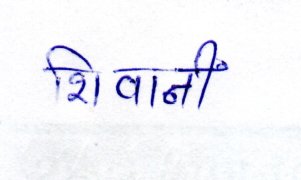 शिवानीं